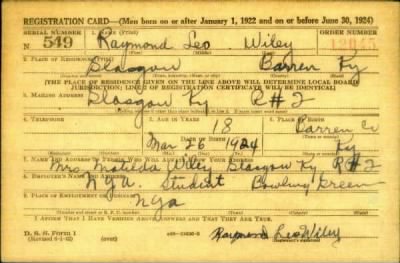 REGISTRATION CARD—(Men born on or after January 1, 1922 and on or before June 30, 1924)
SERIAL NUMBER 1. NAME (Print) ORDER NUMBER
N 549 Raymond Leo Wiley
2. PLACE OF RESIDENCE (Print)
Glasgow Barren Ky
[THE PLACE OF RESIDENCE GIVEN ON THE LINE ABOVE WILL DETERMINE LOCAL BOARD
JURISDICTION; LINE 2 OF REGISTRATION CERTIFICATE WILL BE IDENTICAL]
3. MAILING ADDRESS
Glasgow Ky R#2
4. TELEPHONE 5. AGE IN YEARS 6. PLACE OF BIRTH
18 Barren Co
DATE OF BIRTH
Mar 26 1924 Ky
7. NAME AND ADDRESS OF PERSON WHO WILL ALWAYS KNOW YOUR ADDRESS
Mrs Matilda Wiley Glasgow Ky R#2
8. EMPLOYER'S NAME AND ADDRESS
NYA Student Bowling Green
9. PLACE OF EMPLOYMENT OR BUSINESS
NYA
I AFFIRM THAT I HAVE VERIFIED ABOVE ANSWERS AND THAT THEY ARE TRUE.
D. S. S. Form 1
(Revised 6-1-42) (over) Raymond Leo Wiley
(Registrant's signature)